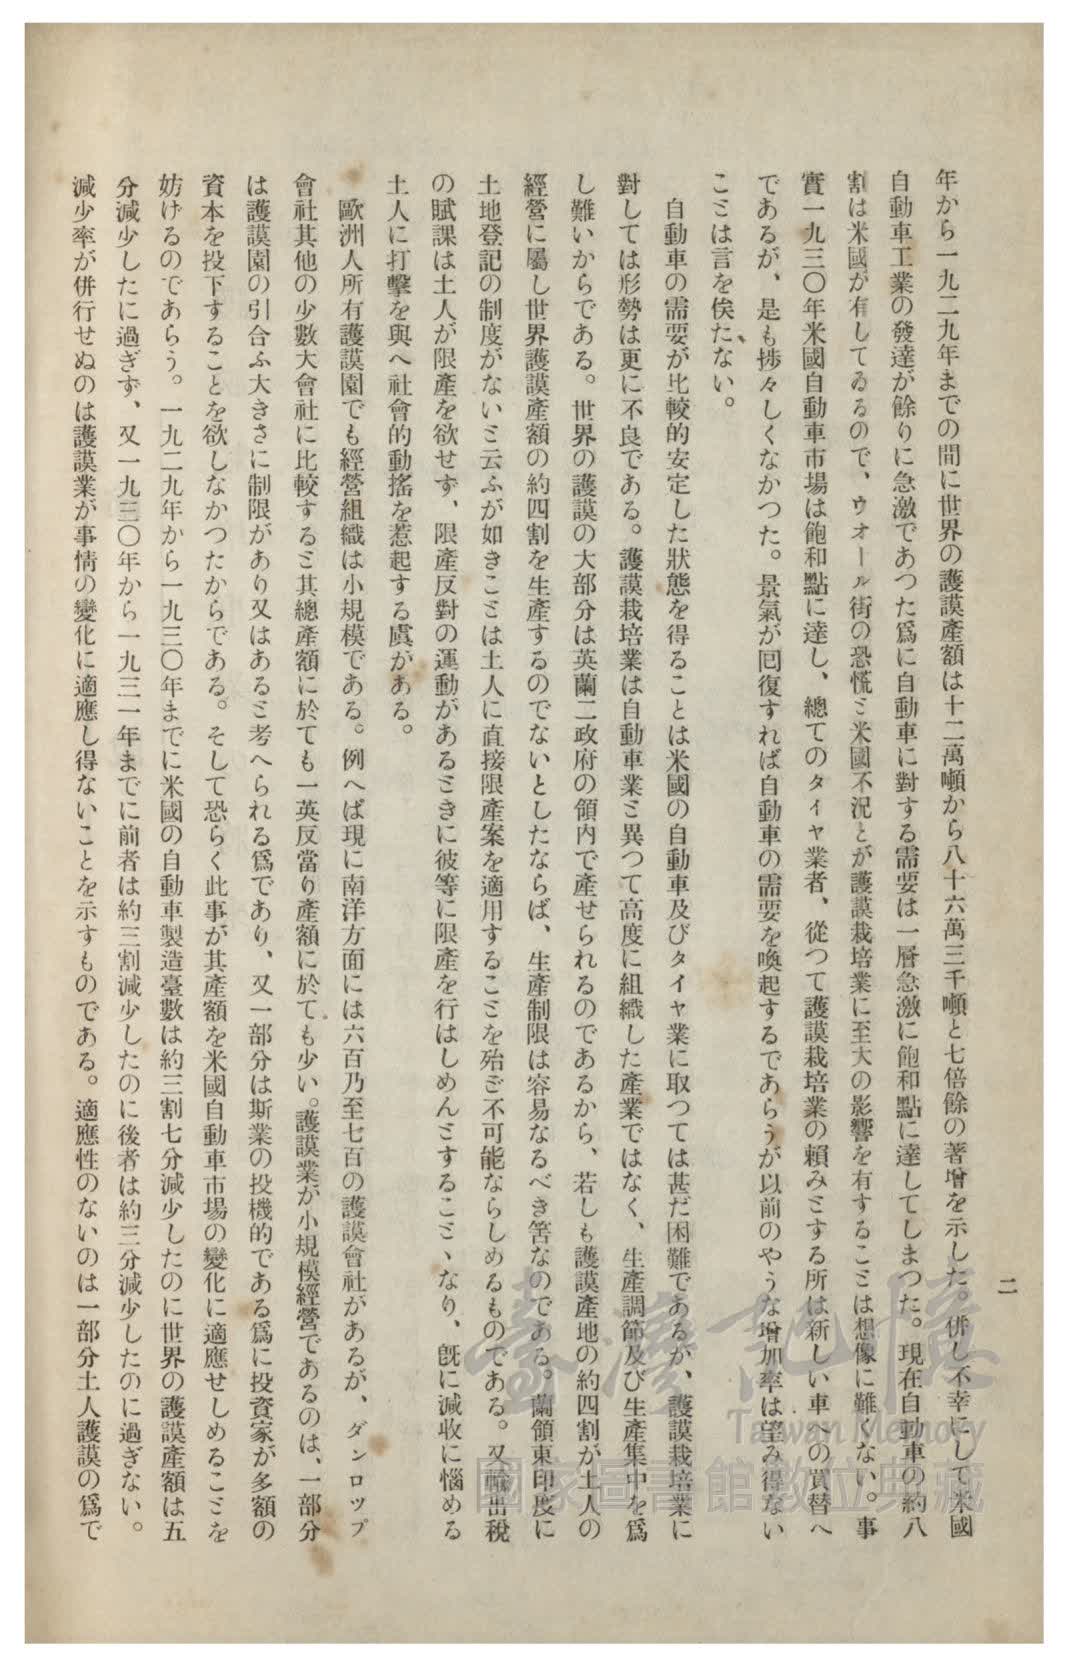 二
年から一九二九年までの間に世界の護謨產額は十二萬噸から八十六萬三千噸と七倍餘の著增を示した。併し不幸にして米國
自動車工業の發達が餘りに急激であつた爲に自動車に對する需要は一層急激に飽和點に達してしまつた。現在自動車の約八
割は米國が有してゐるので、ウオール街の恐慌と米國不況とが護謨栽培業に至大の影響を有することは想像に難くない。事
實一九三〇年米國自動車市場は飽和點に達し、總てのタイヤ業者、從つて護謨栽培業の賴みとする所は新しい車への買替へ
であるが、是も捗々しくなかつた。景氣が囘復すれば自動車の需要を喚起するであらうが以前のやうな增加率は望み得ない
ことは言を俟たない。
自動車の需要が比較的安定した狀態を得ることは米國の自動車及びタイヤ業に取つては甚だ困難であるが、護謨栽培業に
對しては形勢は更に不良である。護謨栽培業は自動車業と異つて高度に組織した產業ではなく、生產調節及び生產集中を爲
し難いからである。世界の護謨の大部分は英蘭二政府の領內で產せられるのであるから、若しも護謨產地の約四割が土人の
經營に屬し世界護謨產額の約四割を生產するのでないとしたならば、生產制限は容易なるべき筈なのである。蘭領東印度に
土地登記の制度がないと云ふが如きことは土人に直接限產案を適用することを殆ど不可能ならしめるものである。又輸出稅
の賦課は土人が限產を欲せず、限產反對の運動があるときに彼等に限產を行はしめんとすることゝなり、旣に減收に惱める
土人に打擊を與へ社會的動搖を惹起する虞がある。
歐洲人所有護謨園でも經營組織は小規模である。例へば現に南洋方面には六百乃至七百の護謨會社があるが、ダンロツプ
會社其他の少數大會社に比較すると其總產額に於ても一英反當り產額に於ても少い。護謨業が小規模經營であるのは、一部分
は護謨園の引合ふ大きさに制限があり又はあると考へられる爲であり、又一部分は斯業の投機的である爲に投資家が多額の
資本を投下することを欲しなかつたからである。そして恐らく此事が其產額を米國自動車市場の變化に適應せしめることを
妨げるのであらう。一九二九年から一九三〇年までに米國の自動車製造臺數は約三割七分減少したのに世界の護謨產額は五
分減少したに過ぎず、又一九三〇年から一九三一年までに前者は約三割減少したのに後者は約三分減少したのに過ぎない。
減少率が併行せぬのは護謨業が事情の變化に適應し得ないことを示すものである。適應性のないのは一部分土人護謨の爲で
臺灣記憶
Taiwan Memory
國家圖書館數位典藏